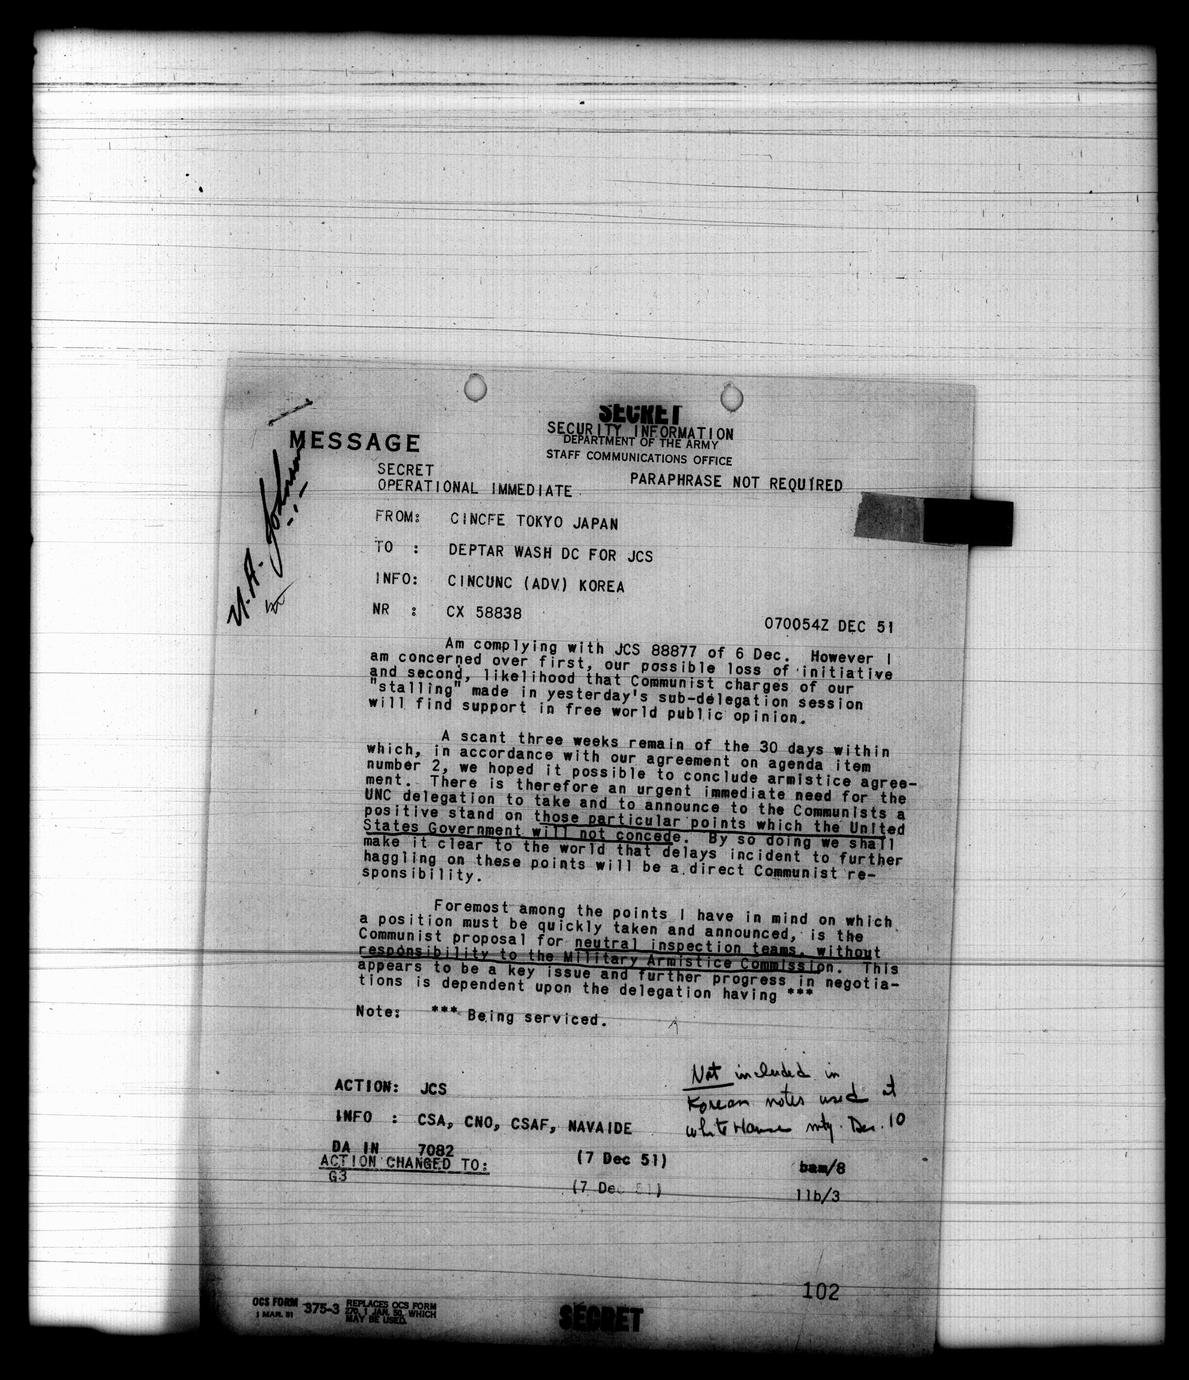 SECRET
SECURITY INFORMATION
MESSAGE
DEPARTMENT OF THE ARMY
STAFF COMMUNICATIONS OFFICE
SECRET
PARAPHRASE NOT REQUIRED
OPERATIONAL IMMEDIATE
FROM: CINCFE TOKYO JAPAN
TO : DEPTAR WASH DC FOR JCS
INFO: CINCUNC (ADV) KOREA
NR : CX 58838
070054Z DEC 51
U.A. Johnson
Am complying with JCS 88877 of 6 Dec. However I
am concerned over first, our possible loss of initiative
and second, likelihood that Communist charges of our
"stalling" made in yesterday's sub-delegation session
will find support in free world public opinion.
A scant three weeks remain of the 30 days within
which, in accordance with our agreement on agenda item
number 2, we hoped it possible to conclude armistice agree-
ment. There is therefore an urgent immediate need for the
UNC delegation to take and to announce to the Communists a
positive stand on those particular points which the United
States Government will not concede. By so doing we shall
make it clear to the world that delays incident to further
haggling on these points will be a direct Communist re-
sponsibility.
Foremost among the points I have in mind on which
a position must be quickly taken and announced, is the
Communist proposal for neutral inspection teams, without
responsibility to the Military Armistice Commission. This
appears to be a key issue and further progress in negotia-
tions is dependent upon the delegation having ***
Note: *** Being serviced.
Not included in
Korean notes used at
White House mtg. Dec. 10
ACTION: JCS
INFO : CSA, CNO, CSAF, NAVAIDE
DA IN 7082 (7 Dec 51) bam/8
ACTION CHANGED TO:
G3 (7 Dec 51) llb/3
102
OCS FORM 375-3 REPLACES OCS FORM
1 MAR. 51 270, 1 JAN. 50, WHICH
MAY BE USED.
SECRET